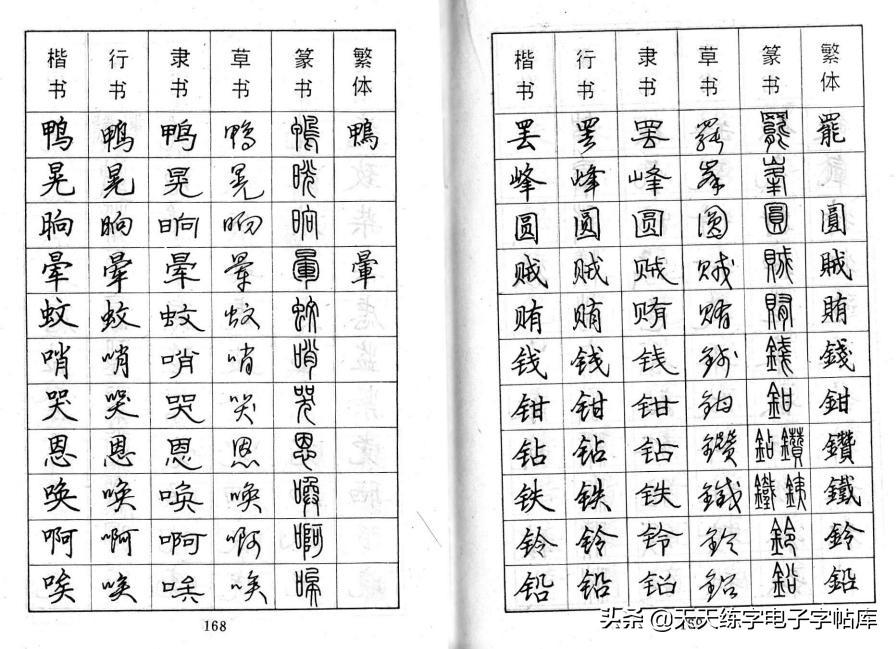 楷书 行书 隶书 草书 篆书 繁体
鸭 鸭 鸭 鸭 鴨 鴨
晃 晃 晃 晃 晃
晌 晌 晌 晌 晌
晕 晕 晕 晕 暈 暈
蚊 蚊 蚊 蚊 蚊
哨 哨 哨 哨 哨
哭 哭 哭 哭 哭
恩 恩 恩 恩 恩
唤 唤 唤 唤 唤
啊 啊 啊 啊 啊
唉 唉 唉 唉 唉
168
楷书 行书 隶书 草书 篆书 繁体
罢 罢 罢 罢 罷 罷
峰 峰 峰 峯 峯
圆 圆 圆 圆 圓 圓
贼 贼 贼 贼 賊 賊
贿 贿 贿 贿 賄 賄
钱 钱 钱 钱 錢 錢
钳 钳 钳 钳 鉗 鉗
钻 钻 钻 鑽 鉆鑽 鑽
铁 铁 铁 鐵 鐵銕 鐵
铃 铃 铃 铃 鈴 鈴
铅 铅 铅 铅 鉛 鉛
头条 @天天练字电子字帖库